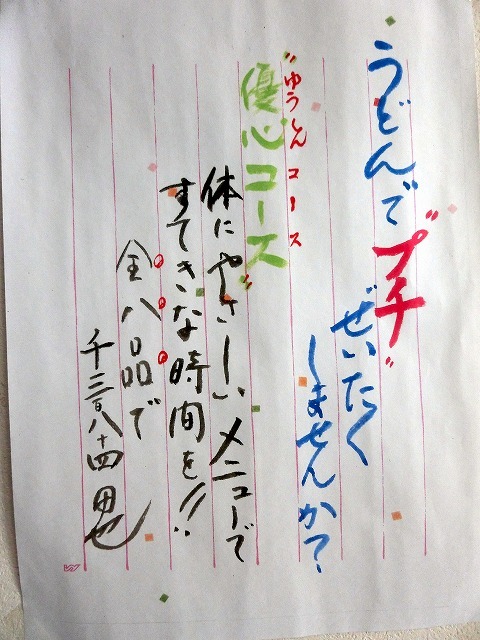 うどんで〝プチ〟
ぜいたく
しませんか？
〝ゆうしんコース
優心コース〟
体にやさしいメニューで
すてきな時間を!!
全八品で
千三百八十四円也